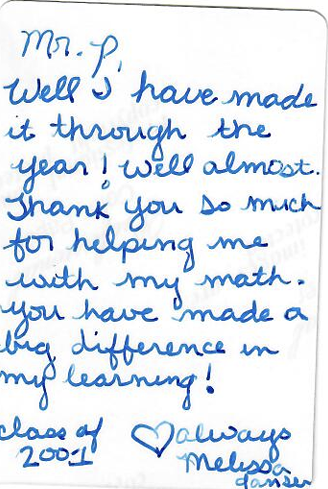 Mr. P,
Well I have made
it through the
year! Well almost.
Thank you so much
for helping me
with my math.
You have made a
big difference in
my learning!
class of ♡always
2001 Melissa